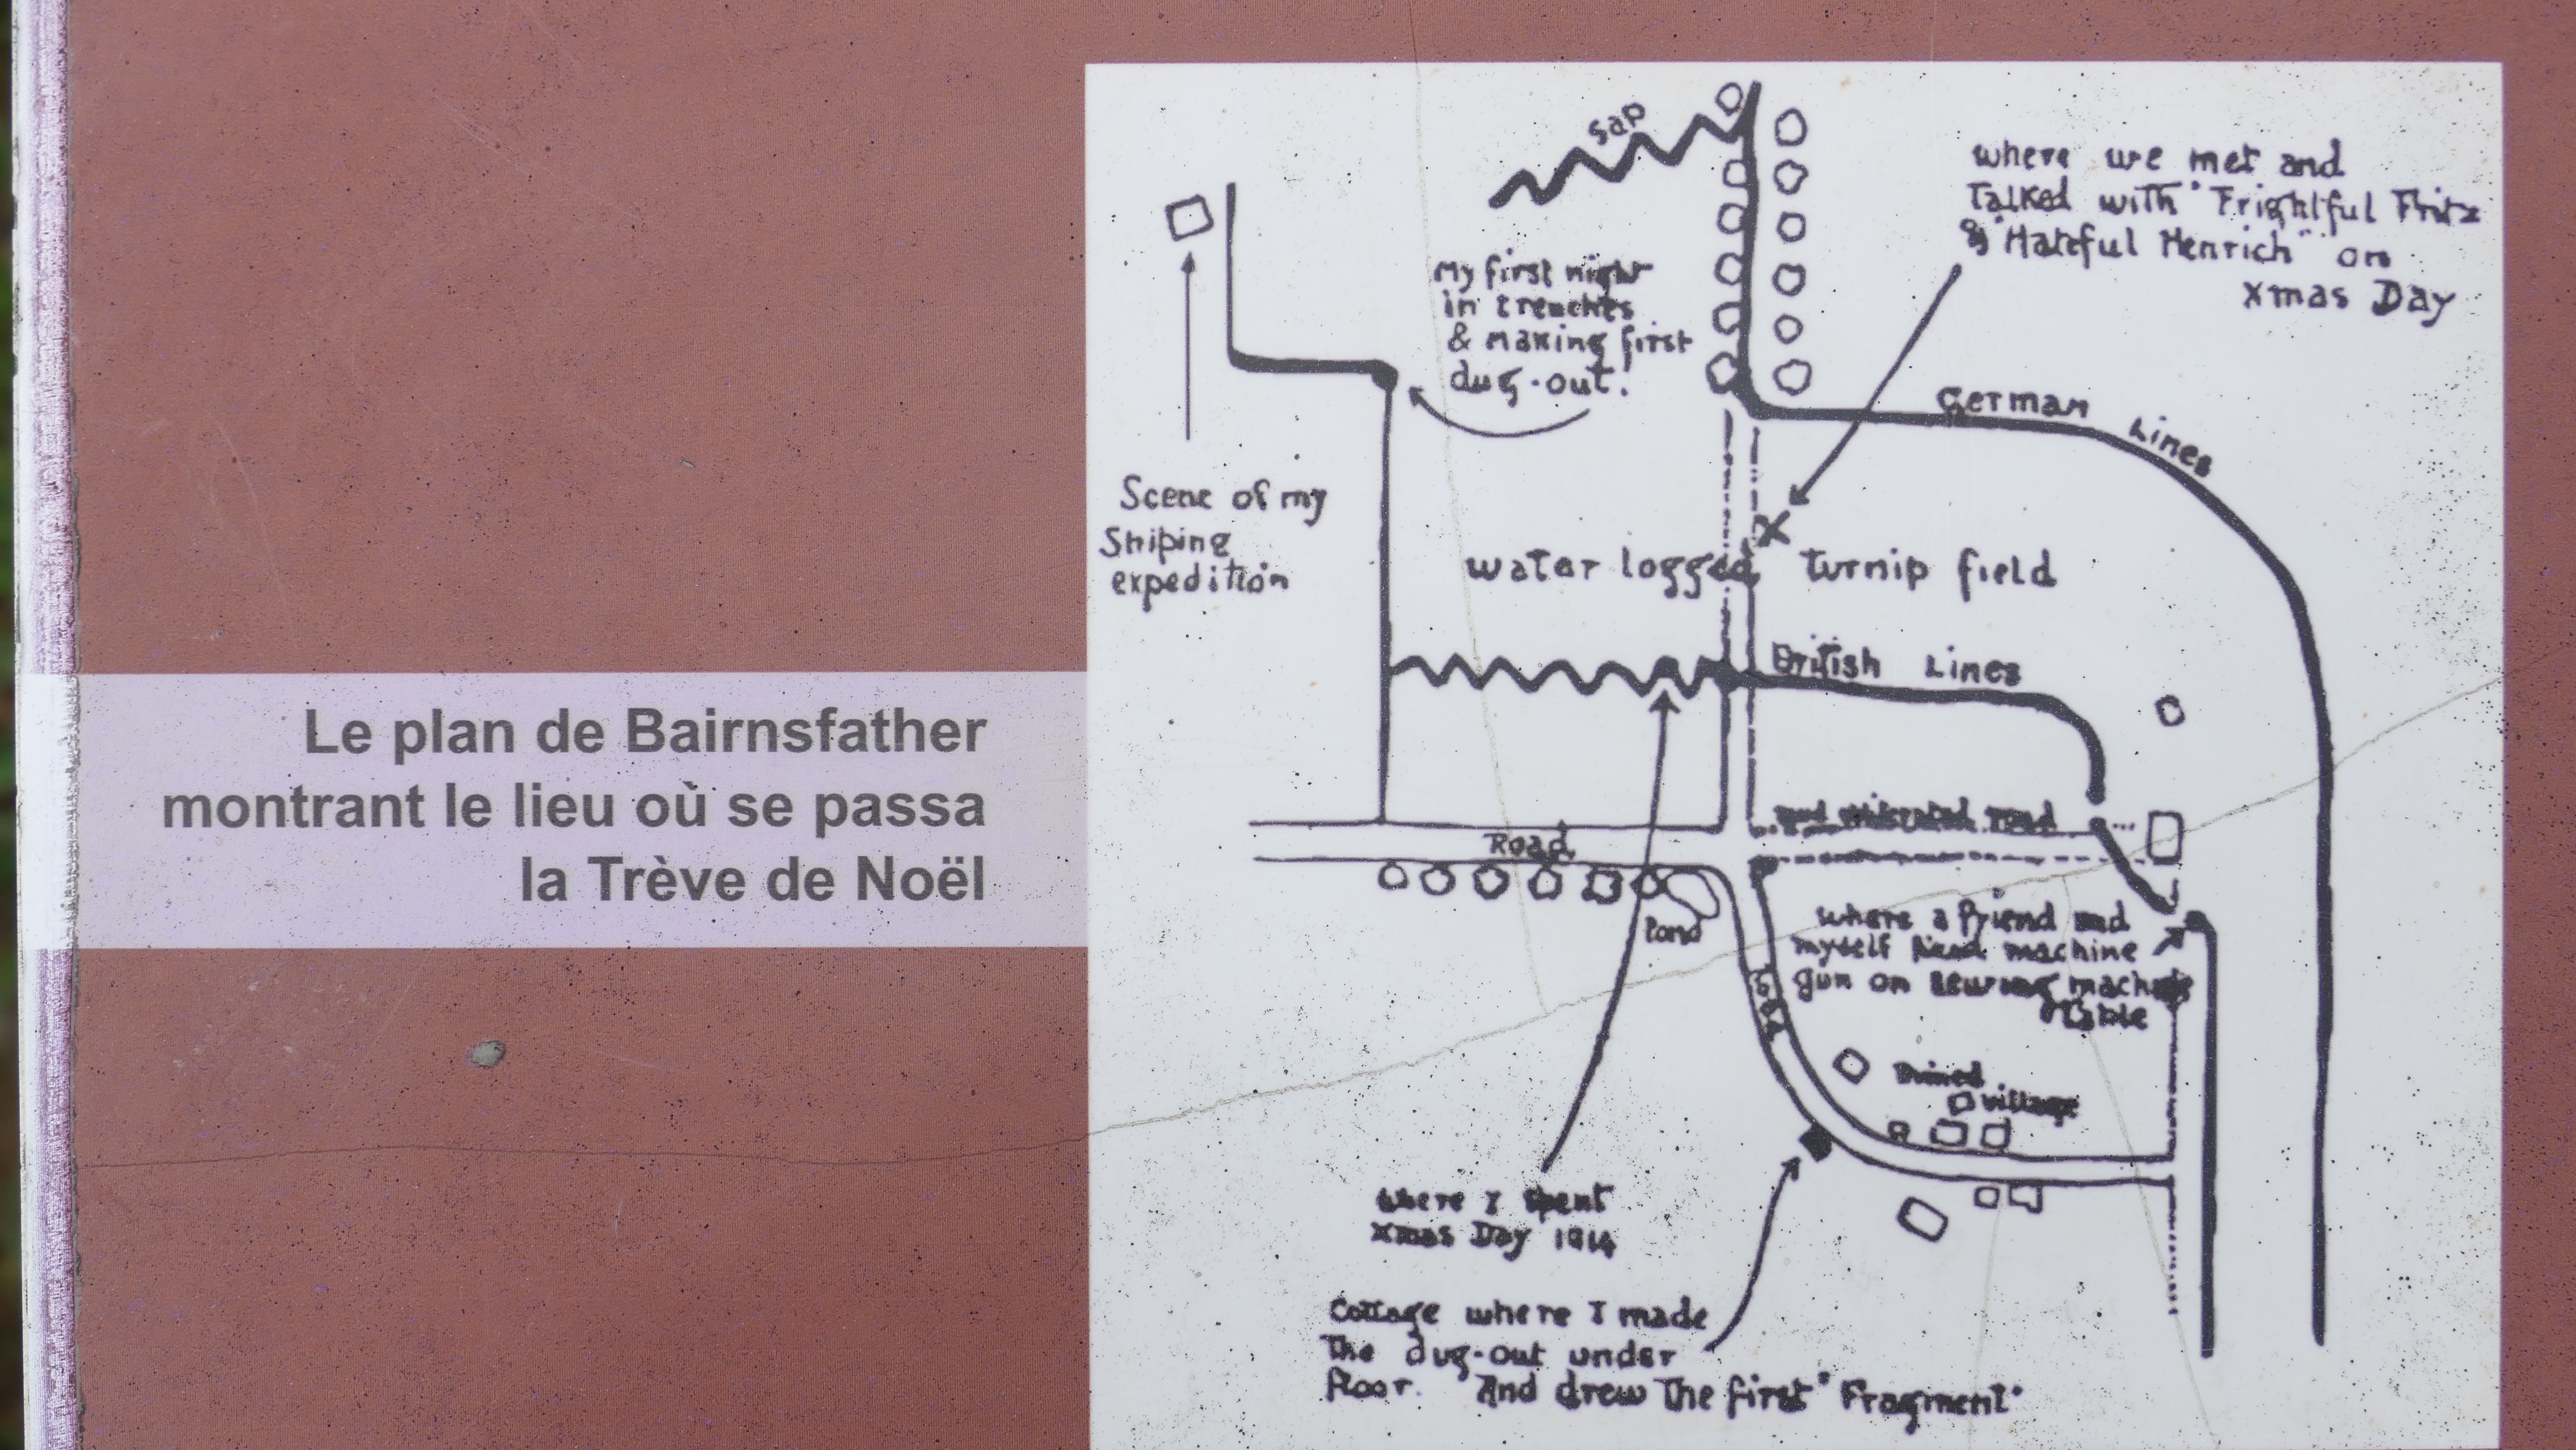 Le plan de Bairnsfather
montrant le lieu où se passa
la Trève de Noël
Sap
where we met and
Talked with "Frightful Fritz
& "Hateful Henrich" on
Xmas Day
My first night
in trenches
& making first
dug-out!
German Lines
Scene of my
Sniping
expedition
water logged turnip field
British Lines
Road
Pond
where a friend and
myself machine
gun on sewing machine
table
Ruined
village
where I spent
Xmas Day 1914
Cottage where I made
The dug-out under
floor. And drew The first "Fragment"